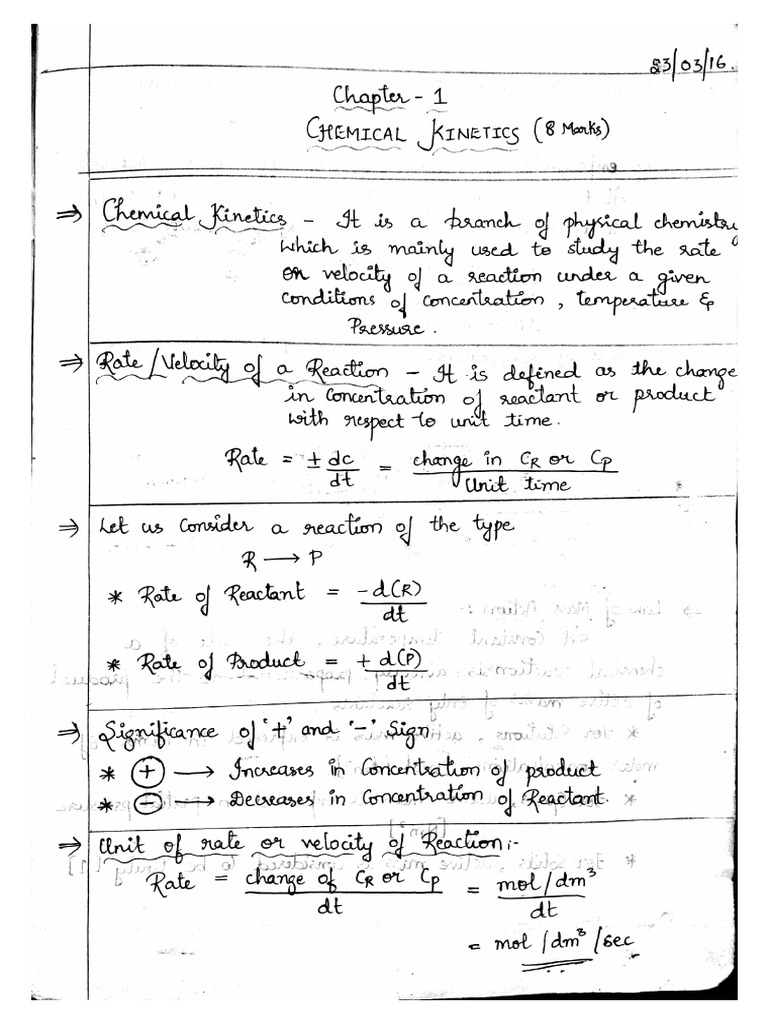 23/03/16.
Chapter - 1
CHEMICAL KINETICS (8 Marks)
⇒ Chemical Kinetics - It is a branch of physical chemistry
which is mainly used to study the rate
or velocity of a reaction under a given
conditions of concentration, temperature &
Pressure.
⇒ Rate/Velocity of a Reaction - It is defined as the change
in concentration of reactant or product
with respect to unit time.
Rate = ± dc/dt = change in CR or Cp / Unit time
⇒ Let us consider a reaction of the type
R → P
* Rate of Reactant = -d(R)/dt
* Rate of Product = + d(P)/dt
⇒ Significance of '+' and '-' Sign
* (+) → Increases in Concentration of product
* (-) → Decreases in Concentration of Reactant.
⇒ Unit of rate or velocity of Reaction:-
Rate = change of CR or Cp / dt = mol/dm³ / dt
= mol/dm³/sec